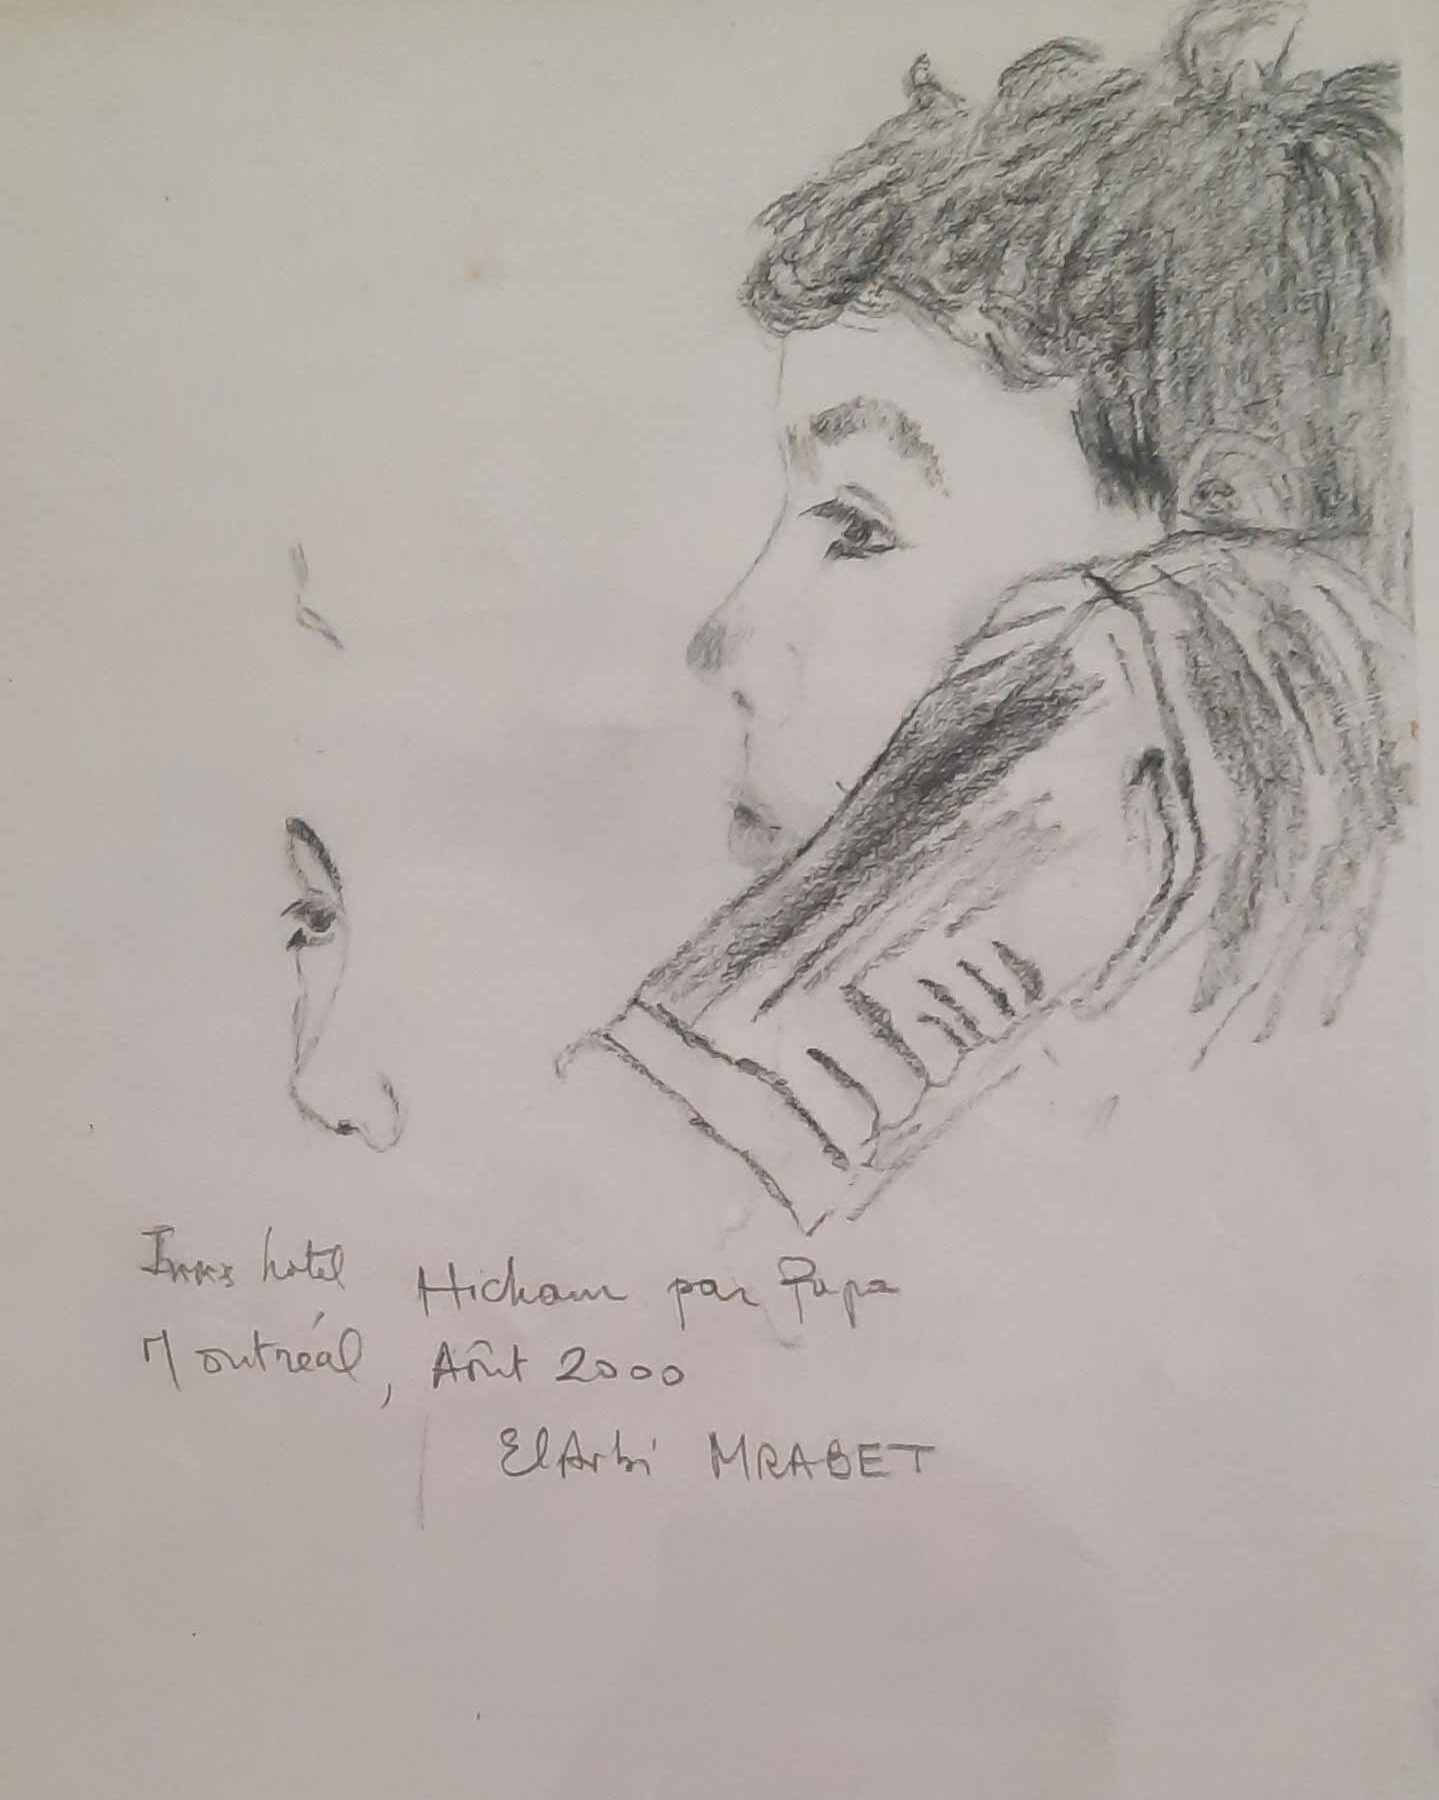 Inns hotel Hicham par Papa
Montréal, Août 2000
ElArbi MRABET